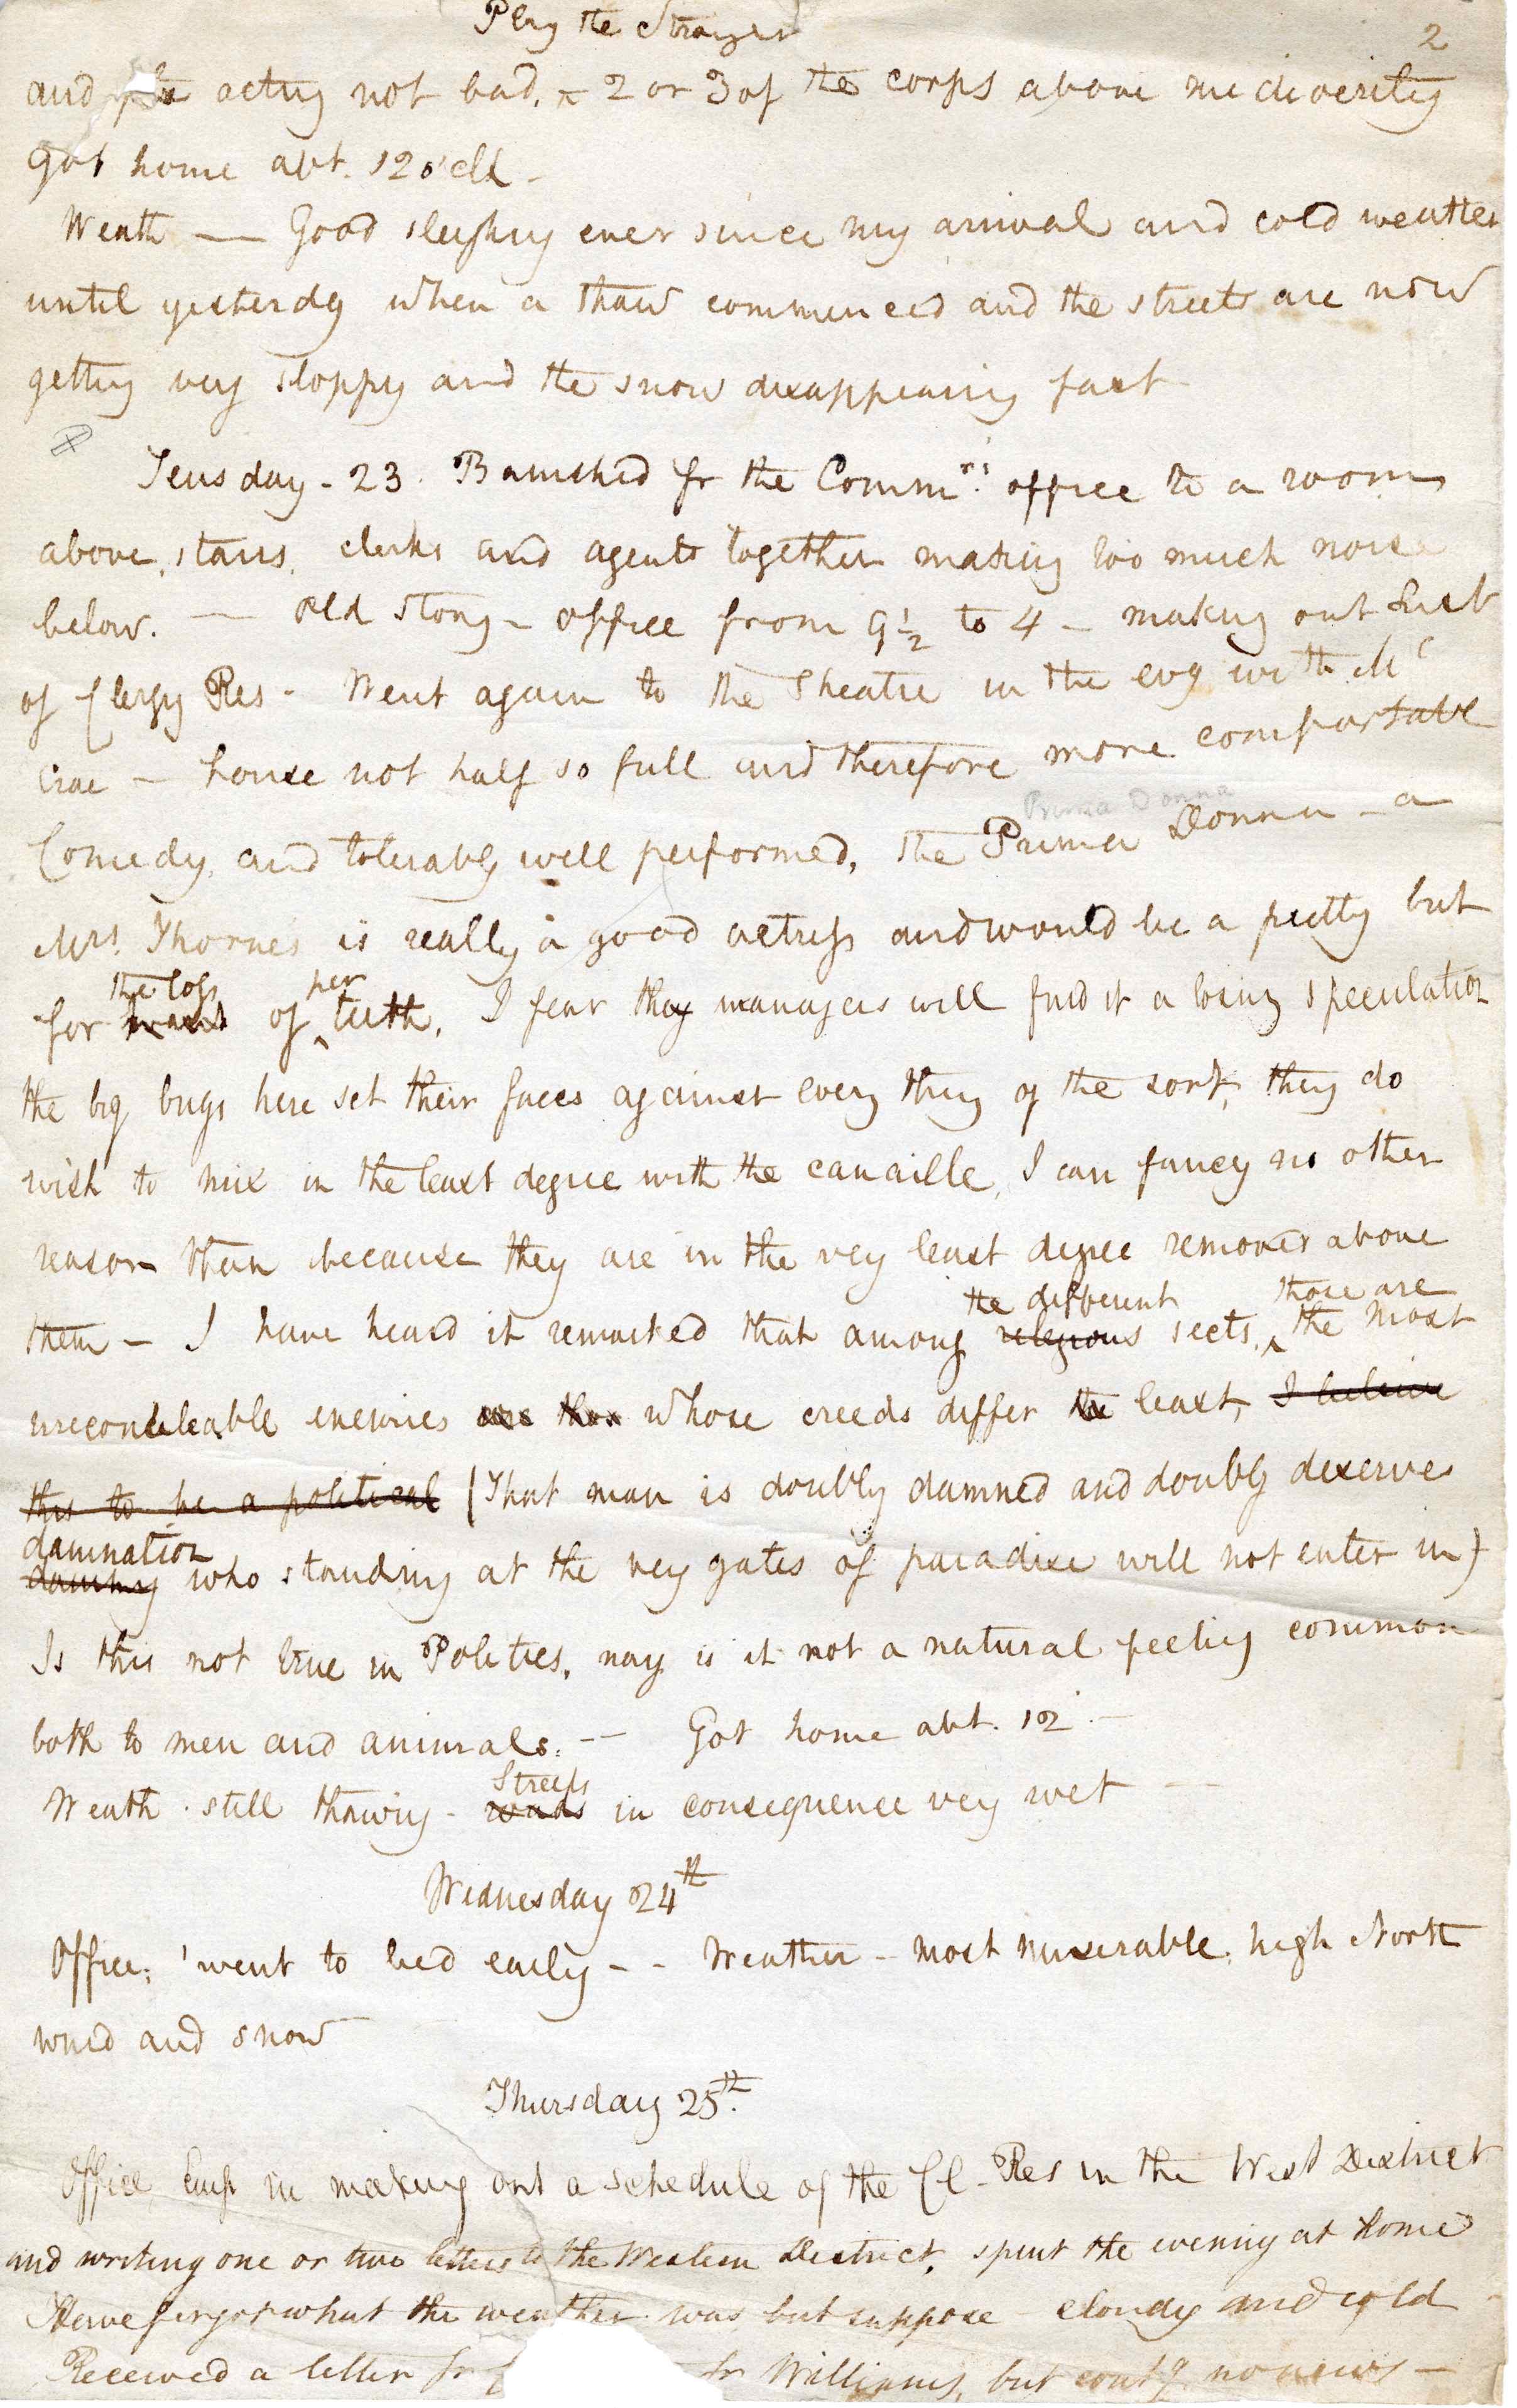 Play the Stranger
2
and the acting not bad. - 2 or 3 of the corps above mediocrity
got home abt. 12 o'clk -
Weath — Good sleighing ever since my arrival and cold weather
until yesterdy when a thaw commenced and the streets are now
getting very sloppy and the snow disappearing fast
Teusday - 23. Banished fr the Commrs. office to a room
above stairs, clerks and agents together making too much noise
below. — old story - office from 9½ to 4 - making out List
of Clergy Res - Went again to the Theatre in the evg with Mc
Crae - house not half so full and therefore more comfortable
Prima Donna
Comedy, and tolerably well performed, the Prima Donna - a
Mrs. Thornes is really a good actress and would be a pretty but
the loss her
for want of teeth. I fear they managers will find it a losing speculation
the big bugs here set their faces against every thing of the sort, they do
wish to mix in the least degree with the canaille, I can fancy no other
reason than because they are in the very least degree removed above
the different those are
them - I have heard it remarked that among religious sects, the most
unreconcileable enemies are those whose creeds differ the least, I believe
this to be a political (That man is doubly damned and doubly deserves
damnation
damning who standing at the very gates of paradise will not enter in)
Is this not true in Politics, nay is it not a natural feeling common
both to men and animals. -- Got home abt. 12 -
Streets
Weath. still thawing - roads in consequence very wet —
Wednesday 24th
Office; went to bed early - - Weather - most miserable. high North
wind and snow
Thursday 25th.
Office Emp in making out a schedule of the Cl - Res in the West District
and writing one or two letters to the Western District, spent the evening at home
Have forgot what the weather was but suppose cloudy and cold
Received a letter fr fr Williams, but contg no news -